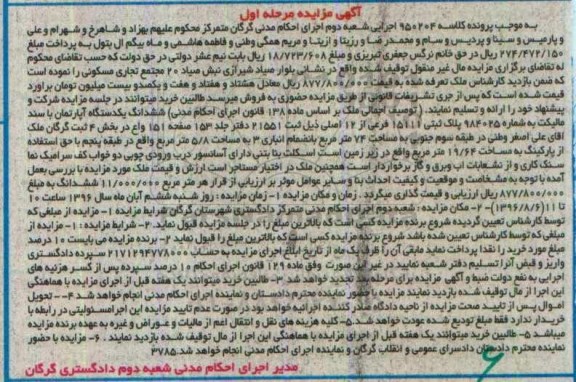 آگهی مزایده مرحله اول
به موجب پرونده کلاسه ۹۵۰۲۰۴ اجرایی شعبه دوم اجرای احکام مدنی گرگان متمرکز محکوم علیهم بهزاد و شاهرخ و شهرام و علی
و پارمیس و سینا و پردیس و سام و محمدرضا و رزیتا و آزیتا و مریم همگی وطنی و فاطمه هاشمی و ماه بیگم آل بتول به پرداخت مبلغ
۲۷۴/۴۷۲/۱۵۰ ریال در حق خانم نرگس جعفری تبریزی و مبلغ ۱۸/۷۲۳/۶۰۸ ریال بابت نیم عشر دولتی در حق دولت که حسب تقاضای محکوم
له تقاضای برگزاری مزایده مال غیر منقول توقیف شده واقع در نشانی بلوار صیاد شیرازی نبش صیاد ۲۰ مجتمع تجاری مسکونی را نموده است
که ضمن بازدید کارشناس ملک تعرفه شده به قیمت ۸۷۷/۸۰۰/۰۰۰ ریال معادل هشتاد و هفتاد و هفت و یکصدو بیست میلیون تومان برآورد
قیمت شده است که پس از جری تشریفات قانونی از طریق مزایده حضوری به فروش میرسد طالبین خرید میتوانند در جلسه مزایده شرکت و
پیشنهاد خود را ارائه و تسلیم نمایند. (توصیف اجمالی ملک بر اساس ماده ۱۳۸ قانون اجرای احکام مدنی) ششدانگ یکدستگاه آپارتمان با سند
مالکیت به شماره ۹۸۴۰۲۵ پلاک ثبتی ۱۵۱۱۱ فرعی از ۱۲ اصلی ذیل ثبت ۲۱۵۵۱ دفتر جلد ۱۵۳ صفحه ۱۵۱ واع در بخش ۴ ثبت گرگان ملک
آقای علی اصغر وطنی در طبقه سوم جنوبی به مساحت ۷۴ متر مربع بانضمام انباری ۳ به مساحت ۵/۸ متر مربع واقع در طبقه پنجم با حق استفاده
از پارکینگ به مساحت ۱۹/۶۴ متر مربع واقع در زیر زمین است اسکلت بنا بتنی دارای آسانسور درب ورودی چوبی دو خواب کف سرامیک نما
سنگ کاری و از انشعابات آب وبرق و گاز برخوردار است همچنین ملک در اختیار مستاجر است ارزش و قیمت ملک مورد مزایده با بررسی بعمل
آمده با توجه به مشخصات و موقعیت و کیفیت احداث بنا و سایر عوامل موثر بر ارزیابی از قرار هر متر مربع ۱۱/۰۰۰/۰۰۰ ششدانگ به مبلغ
۸۷۷/۸۰۰/۰۰۰ ریال ارزیابی و قیمت گذاری میگردد. زمان و مکان مزایده ۱- زمان مزایده: روز شنبه ششم آبان ماه سال ۱۳۹۶ ساعت ۱۰
تا ۱۱ (۱۳۹۶/۸/۶) ۲- مکان مزایده: شعبه دوم اجرای احکام مدنی متمرکز دادگستری شهرستان گرگان شرایط مزایده ۱- مزایده از مبلغی که
توسط کارشناس تعیین گردیده شروع برنده مزایده کسی است که بالاترین مبلغ را در جلسه مزایده قبول نماید. ۲- شرایط مزایده: ۱- مزایده از
مبلغی که توسط کارشناس تعیین شده باشد شروع برنده مزایده کسی است که بالاترین مبلغ را قبول نماید ۲- برنده مزایده می بایست ۱۰ درصد
مبلغ مورد خرید را نقدا پرداخت نماید مابقی آن را ظرف یک ماه از تاریخ ابلاغ اجرای مزایده به حساب ۲۱۷۱۲۹۴۷۷۸۰۰۰ سپرده دادگستری
واریز و قبض آنرا تسلیم دفتر شعبه نمایید در غیر این صورت وفق ماده ۱۲۹ قانون اجرای احکام ۱۰ درصد سپرده پس از کسر هزینه های
اجرایی به نفع دولت ضبط و آگهی مزایده برای مرحله بعد تجدید خواهد شد ۳- طالبین خرید میتوانند یک هفته قبل از اجرای مزایده با هماهنگی
این اجرا از مال توقیف شده بازدید نمایند مزایده با حضور نماینده محترم دادستان و نماینده اجرای احکام مدنی انجام خواهد شد. ۴- تحویل
اموال پس از تایید صحت مزایده از ناحیه دادگاه صادر کننده اجرائیه خواهد بود در صورت عدم تایید مزایده این اجرا مسئولیتی در رابطه با
خریدار ندارد فقط مبلغ تودیع شده عودت خواهد شد. ۵- کلیه هزینه های نقل و انتقال اعم از مالیات و عوارض و غیره به عهده برنده مزایده
میباشد ۵- طالبین خرید میتوانند یک هفته قبل از اجرای مزایده با هماهنگی این اجرا از مال توقیف شده بازدید نمایند. ۶- مزایده با حضور
نماینده محترم دادستان دادسرای عمومی و انقلاب گرگان و نماینده اجرای احکام مدنی انجام خواهد شد. ۳۷۸۵
مدیر اجرای احکام مدنی شعبه دوم دادگستری گرگان
۶